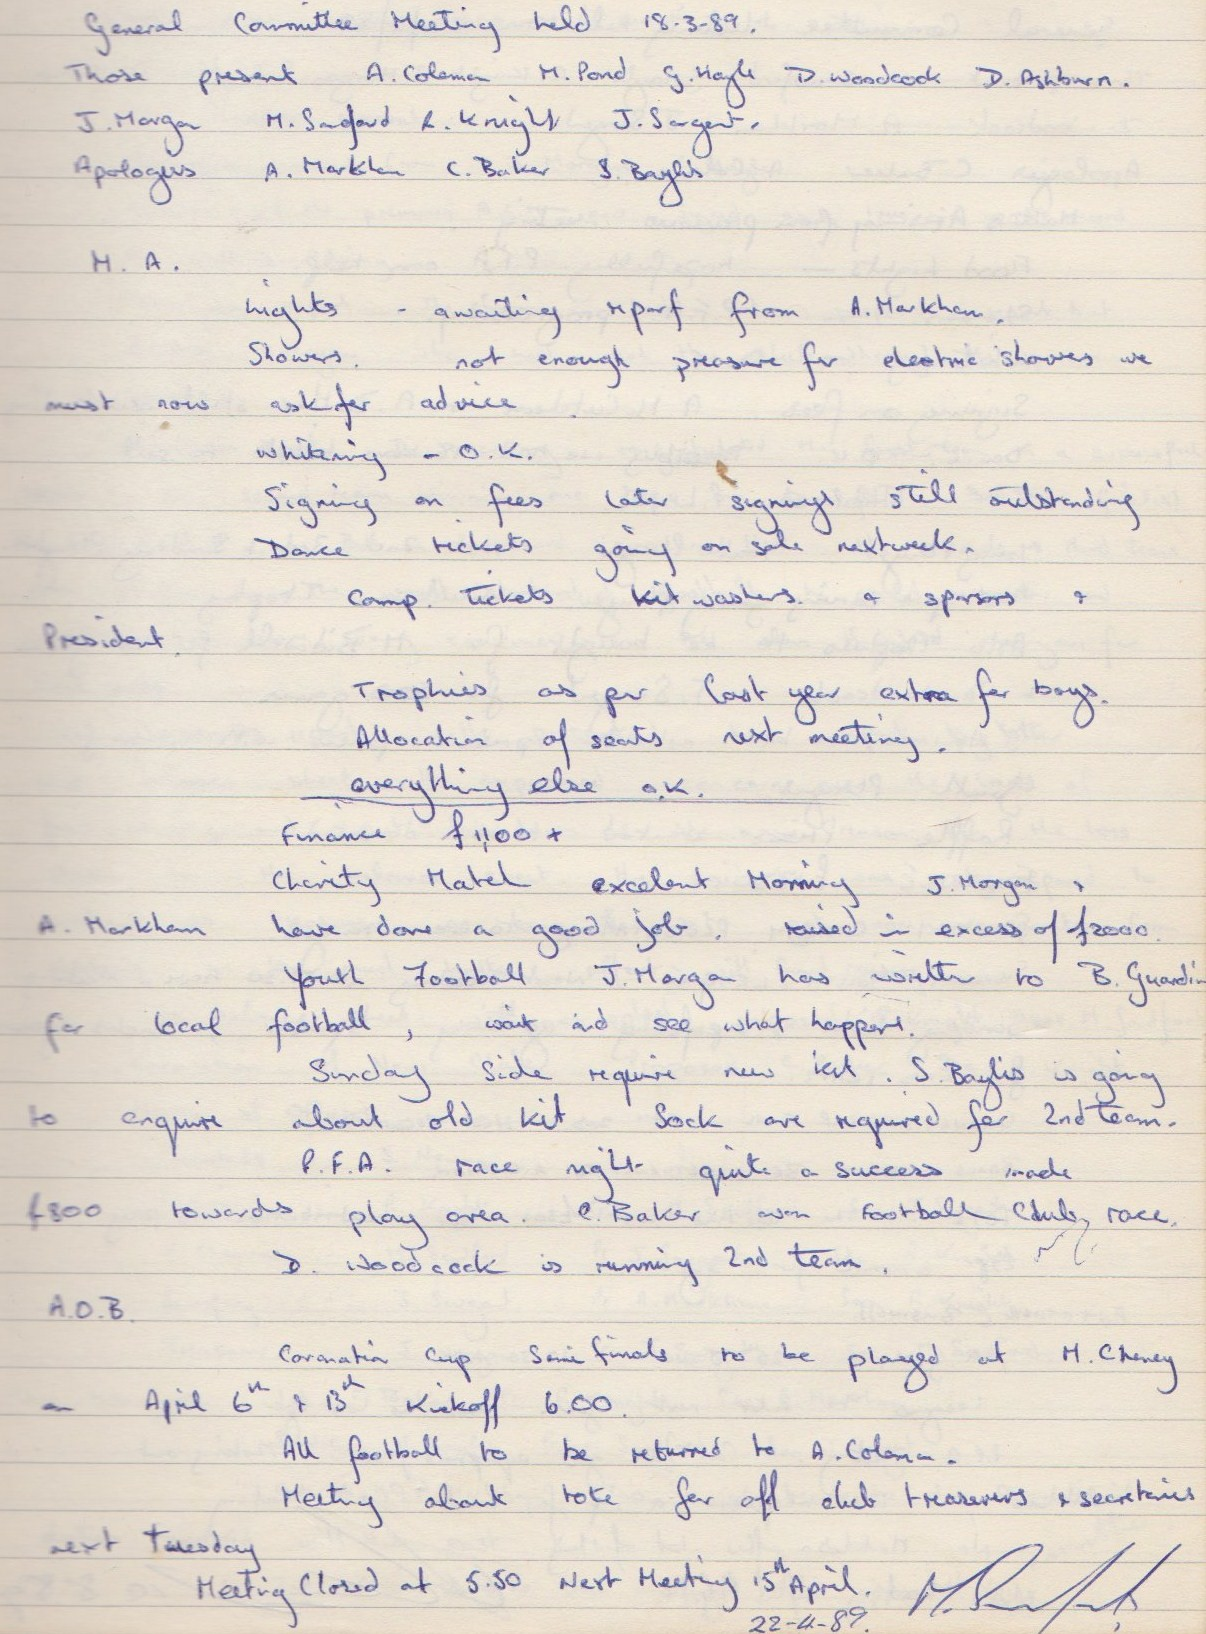 General Committee Meeting held 18-3-89.
Those present A. Coleman M. Pond G. Hayle D. Woodcock D. Ashburn.
J. Morgan M. Sandford R. Knight J. Sargent.
Apologies A. Markham C. Baker S. Baylis
M. A.
Lights - awaiting report from A. Markham.
Showers. not enough pressure for electric showers we
must now ask for advice.
Whitening - O.K.
Signing on fees later signings still outstanding
Dance tickets going on sale next week.
Comp. tickets kit washers. & sponsors &
President.
Trophies as per last year extra for boys.
Allocation of seats next meeting.
everything else o.k.
Finance £1,100 +
Charity Match excelent Morning J. Morgan &
A. Markham have done a good job. raised in excess of £2000.
Youth Football J. Morgan has written to B. Guardin
for local football, wait and see what happens.
Sunday Side require new kit. S. Baylis is going
to enquire about old kit Sock are required for 2nd team.
P.F.A. race night quite a success made
£300 towards play area. C. Baker won Football Club race.
D. Woodcock is running 2nd team.
A.O.B.
Coronation Cup Semi finals to be played at M. Cheney
on April 6th & 13th Kickoff 6.00.
All football to be returned to A. Coleman.
Meeting about take for off club treasurers & secretaries
next Tuesday
Meeting Closed at 5.50 Next Meeting 15th April.
22-4-89.